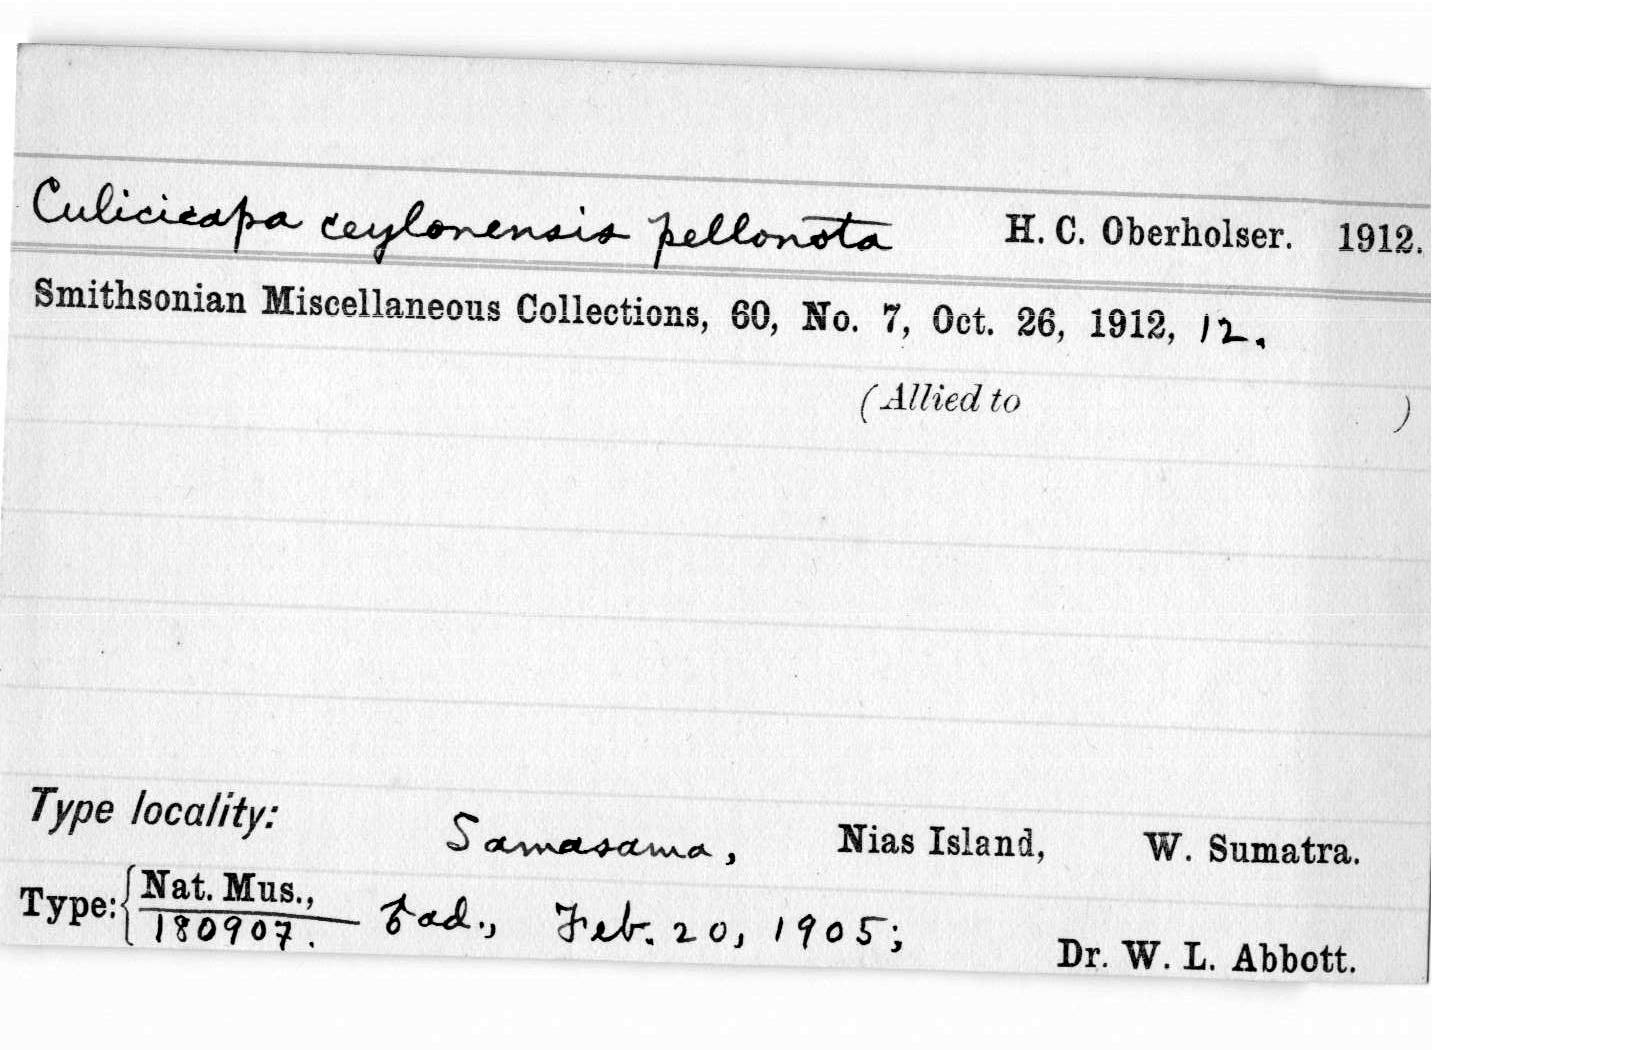 Culicicapa ceylonensis pellonota H. C. Oberholser. 1912.
Smithsonian Miscellaneous Collections, 60, No. 7, Oct. 26, 1912, 12.
(Allied to )
Type locality: Samasama, Nias Island, W. Sumatra.
Type: { Nat. Mus., 180907. ad., Feb. 20, 1905; Dr. W. L. Abbott.